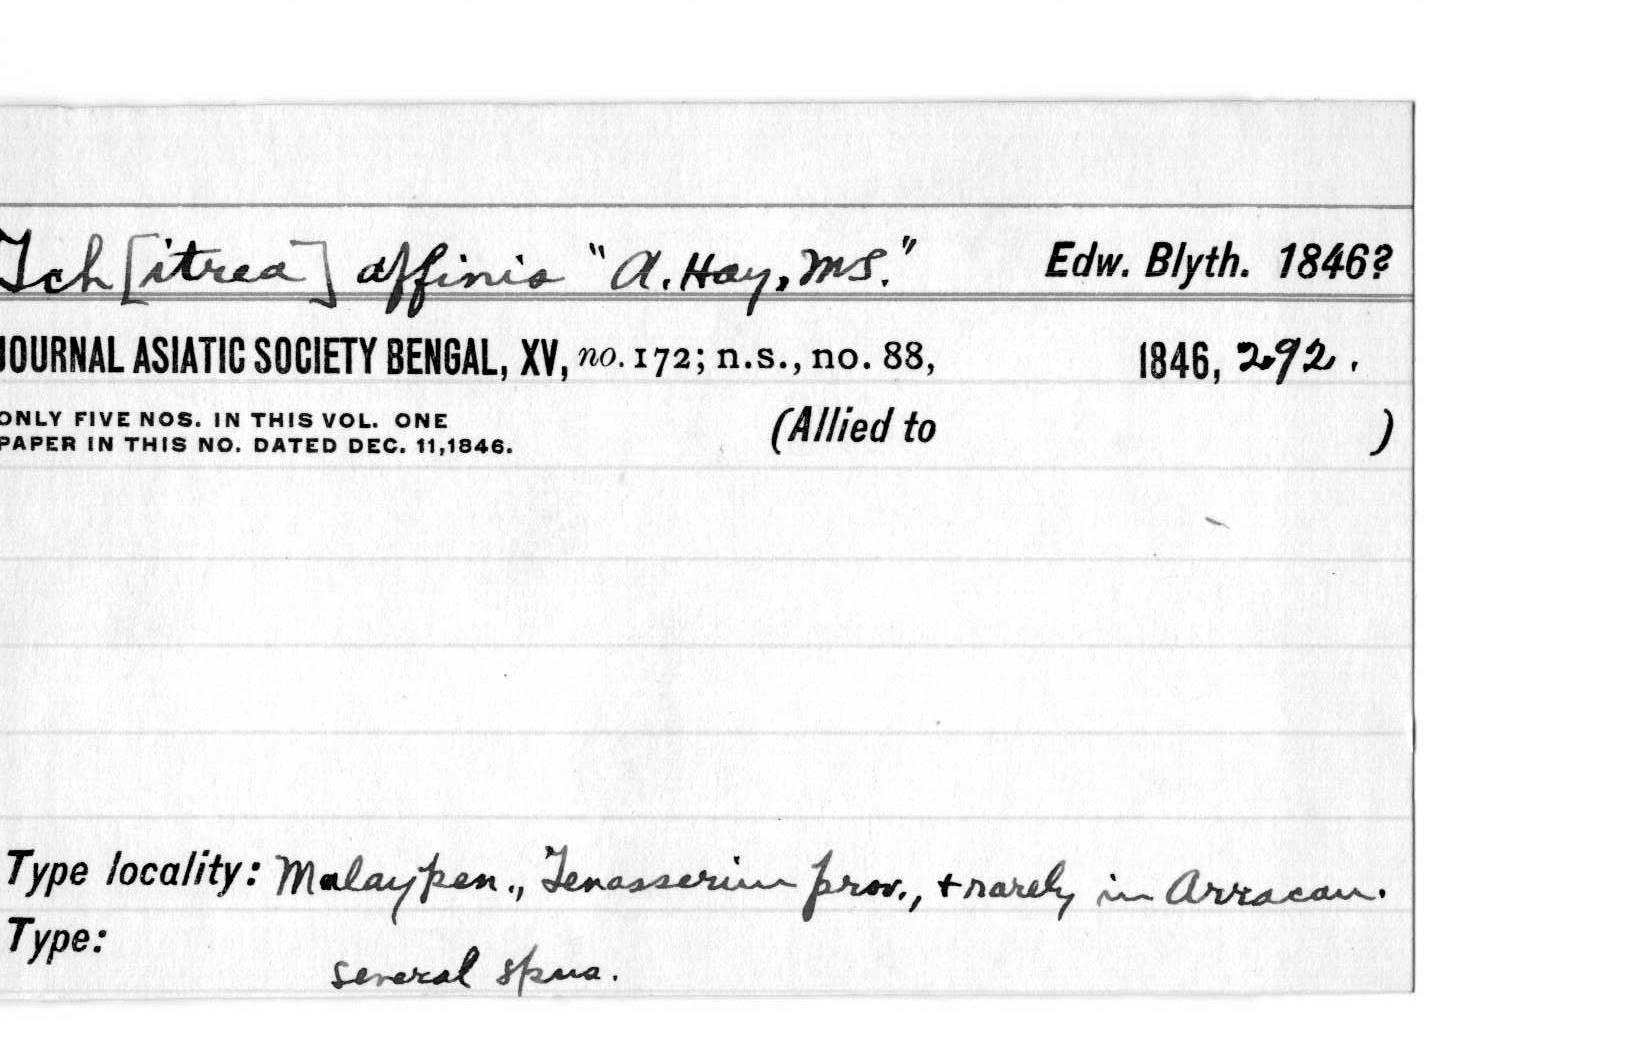 Tch[itrea] affinis "A. Hay, MS." Edw. Blyth. 1846?
JOURNAL ASIATIC SOCIETY BENGAL, XV, no. 172; n.s., no. 88, 1846, 292.
ONLY FIVE NOS. IN THIS VOL. ONE
PAPER IN THIS NO. DATED DEC. 11,1846.
(Allied to )
Type locality: Malay pen., Tenasserim prov., + rarely in Arracan.
Type:
several spms.